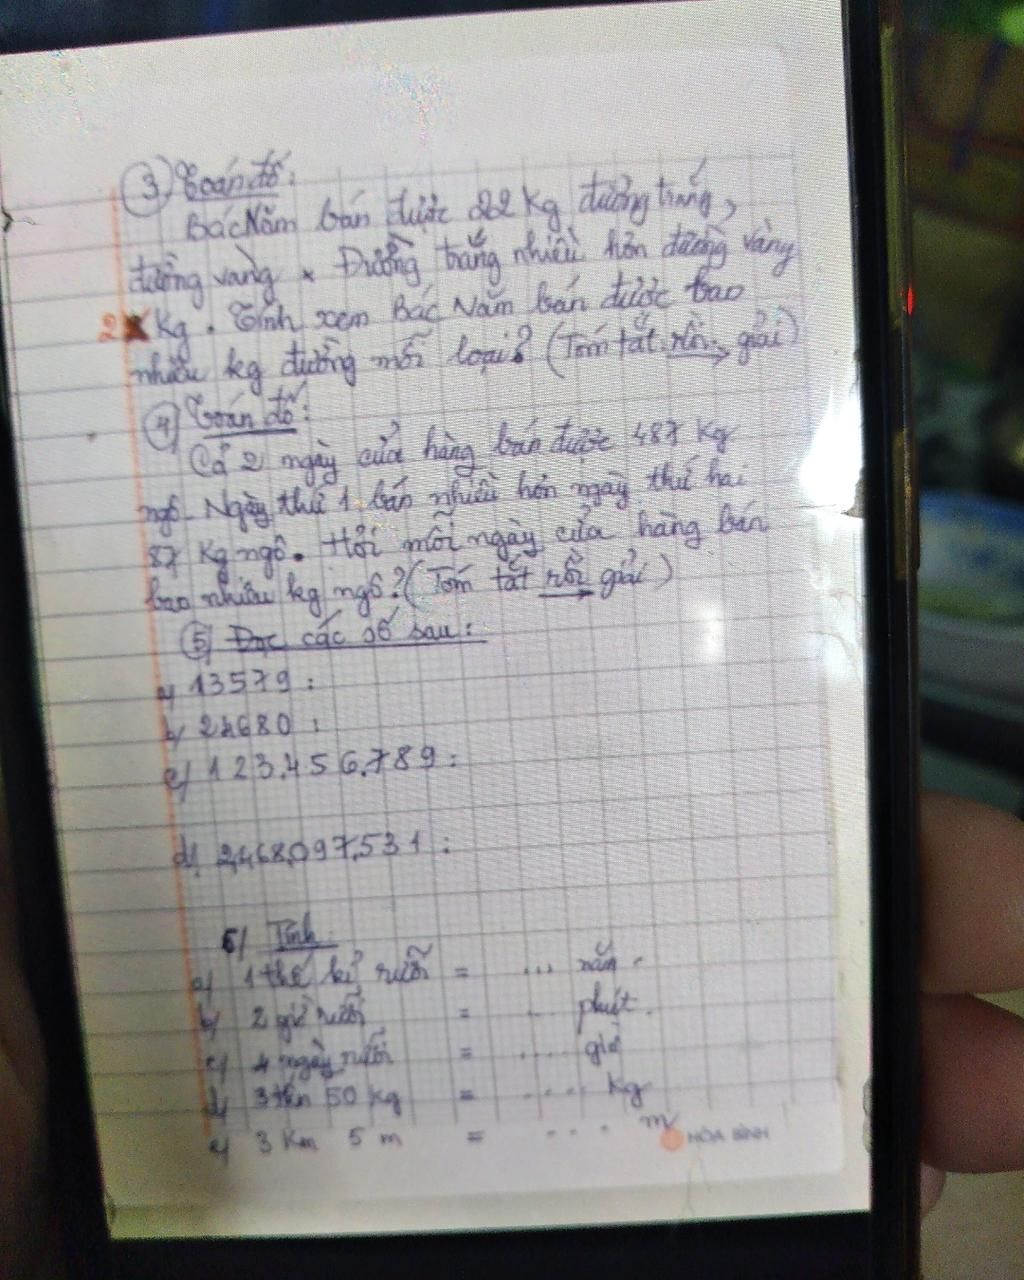 ③ Toán đố:
Bác Năm bán được 22 Kg đường trắng,
đường vàng * Đường trắng nhiều hơn đường vàng
2 Kg. Tính xem Bác Năm bán được bao
nhiêu kg đường mỗi loại? (Tóm tắt rồi giải)
④ Toán đố:
Cả 2 ngày cửa hàng bán được 487 Kg
ngô. Ngày thứ 1 bán nhiều hơn ngày thứ hai
87 Kg ngô. Hỏi mỗi ngày cửa hàng bán
bao nhiêu kg ngô? (Tóm tắt rồi giải)
⑤ Đọc các số sau:
a/ 13579:
b/ 24680:
c/ 123.456.789:
d/ 2,468,097,531:
6/ Tính
a/ 1 thế kỷ rưỡi = ... năm.
b/ 2 giờ rưỡi = ... phút.
c/ 4 ngày rưỡi = .... giờ
d/ 3 tấn 50 kg = ..... Kg
e/ 3 Km 5 m = .... m
HÒA BÌNH